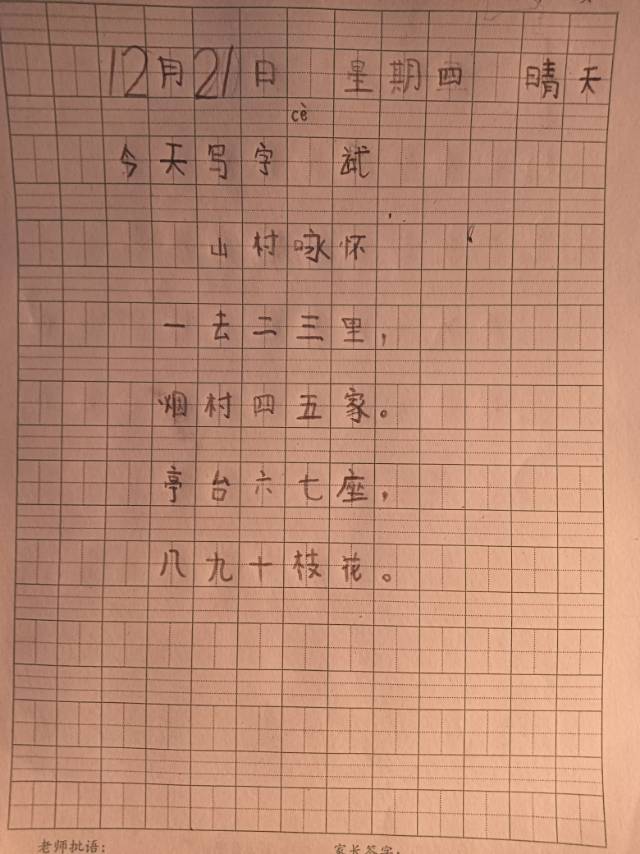 12月21日 星期四 晴天
cè
今天写字 试
山村咏怀
一去二三里，
烟村四五家。
亭台六七座，
八九十枝花。
老师批语： 家长签字：